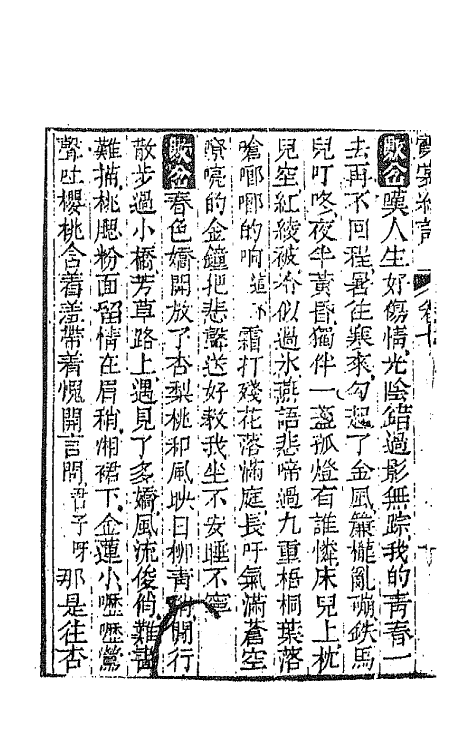 霓裳續譜 卷七
數岔嘆人生好傷情光陰錯過影無踪我的青春一
去再不回程暑往寒來勾起了金風簾櫳亂蹦鉄馬
兒叮咚夜半黃昏獨伴一盞孤燈有誰憐床兒上枕
兒空紅綾被冷似過水燕語悲啼過九重梧桐葉落
嗆啷啷的响 霜打殘花落滿庭長吁氣滿蒼空
嘹喨的金鐘把悲聲送好教我坐不安睡不寧
數岔春色嬌開放了杏梨桃和風映日柳青 閒行
散步過小橋芳草路上遇見了多嬌風流俊俏難畵
難描桃腮粉面留情在眉稍湘裙下金蓮小嚦嚦鶯
聲吐櫻桃含着羞帶着愧開言問君子呀那是往杏